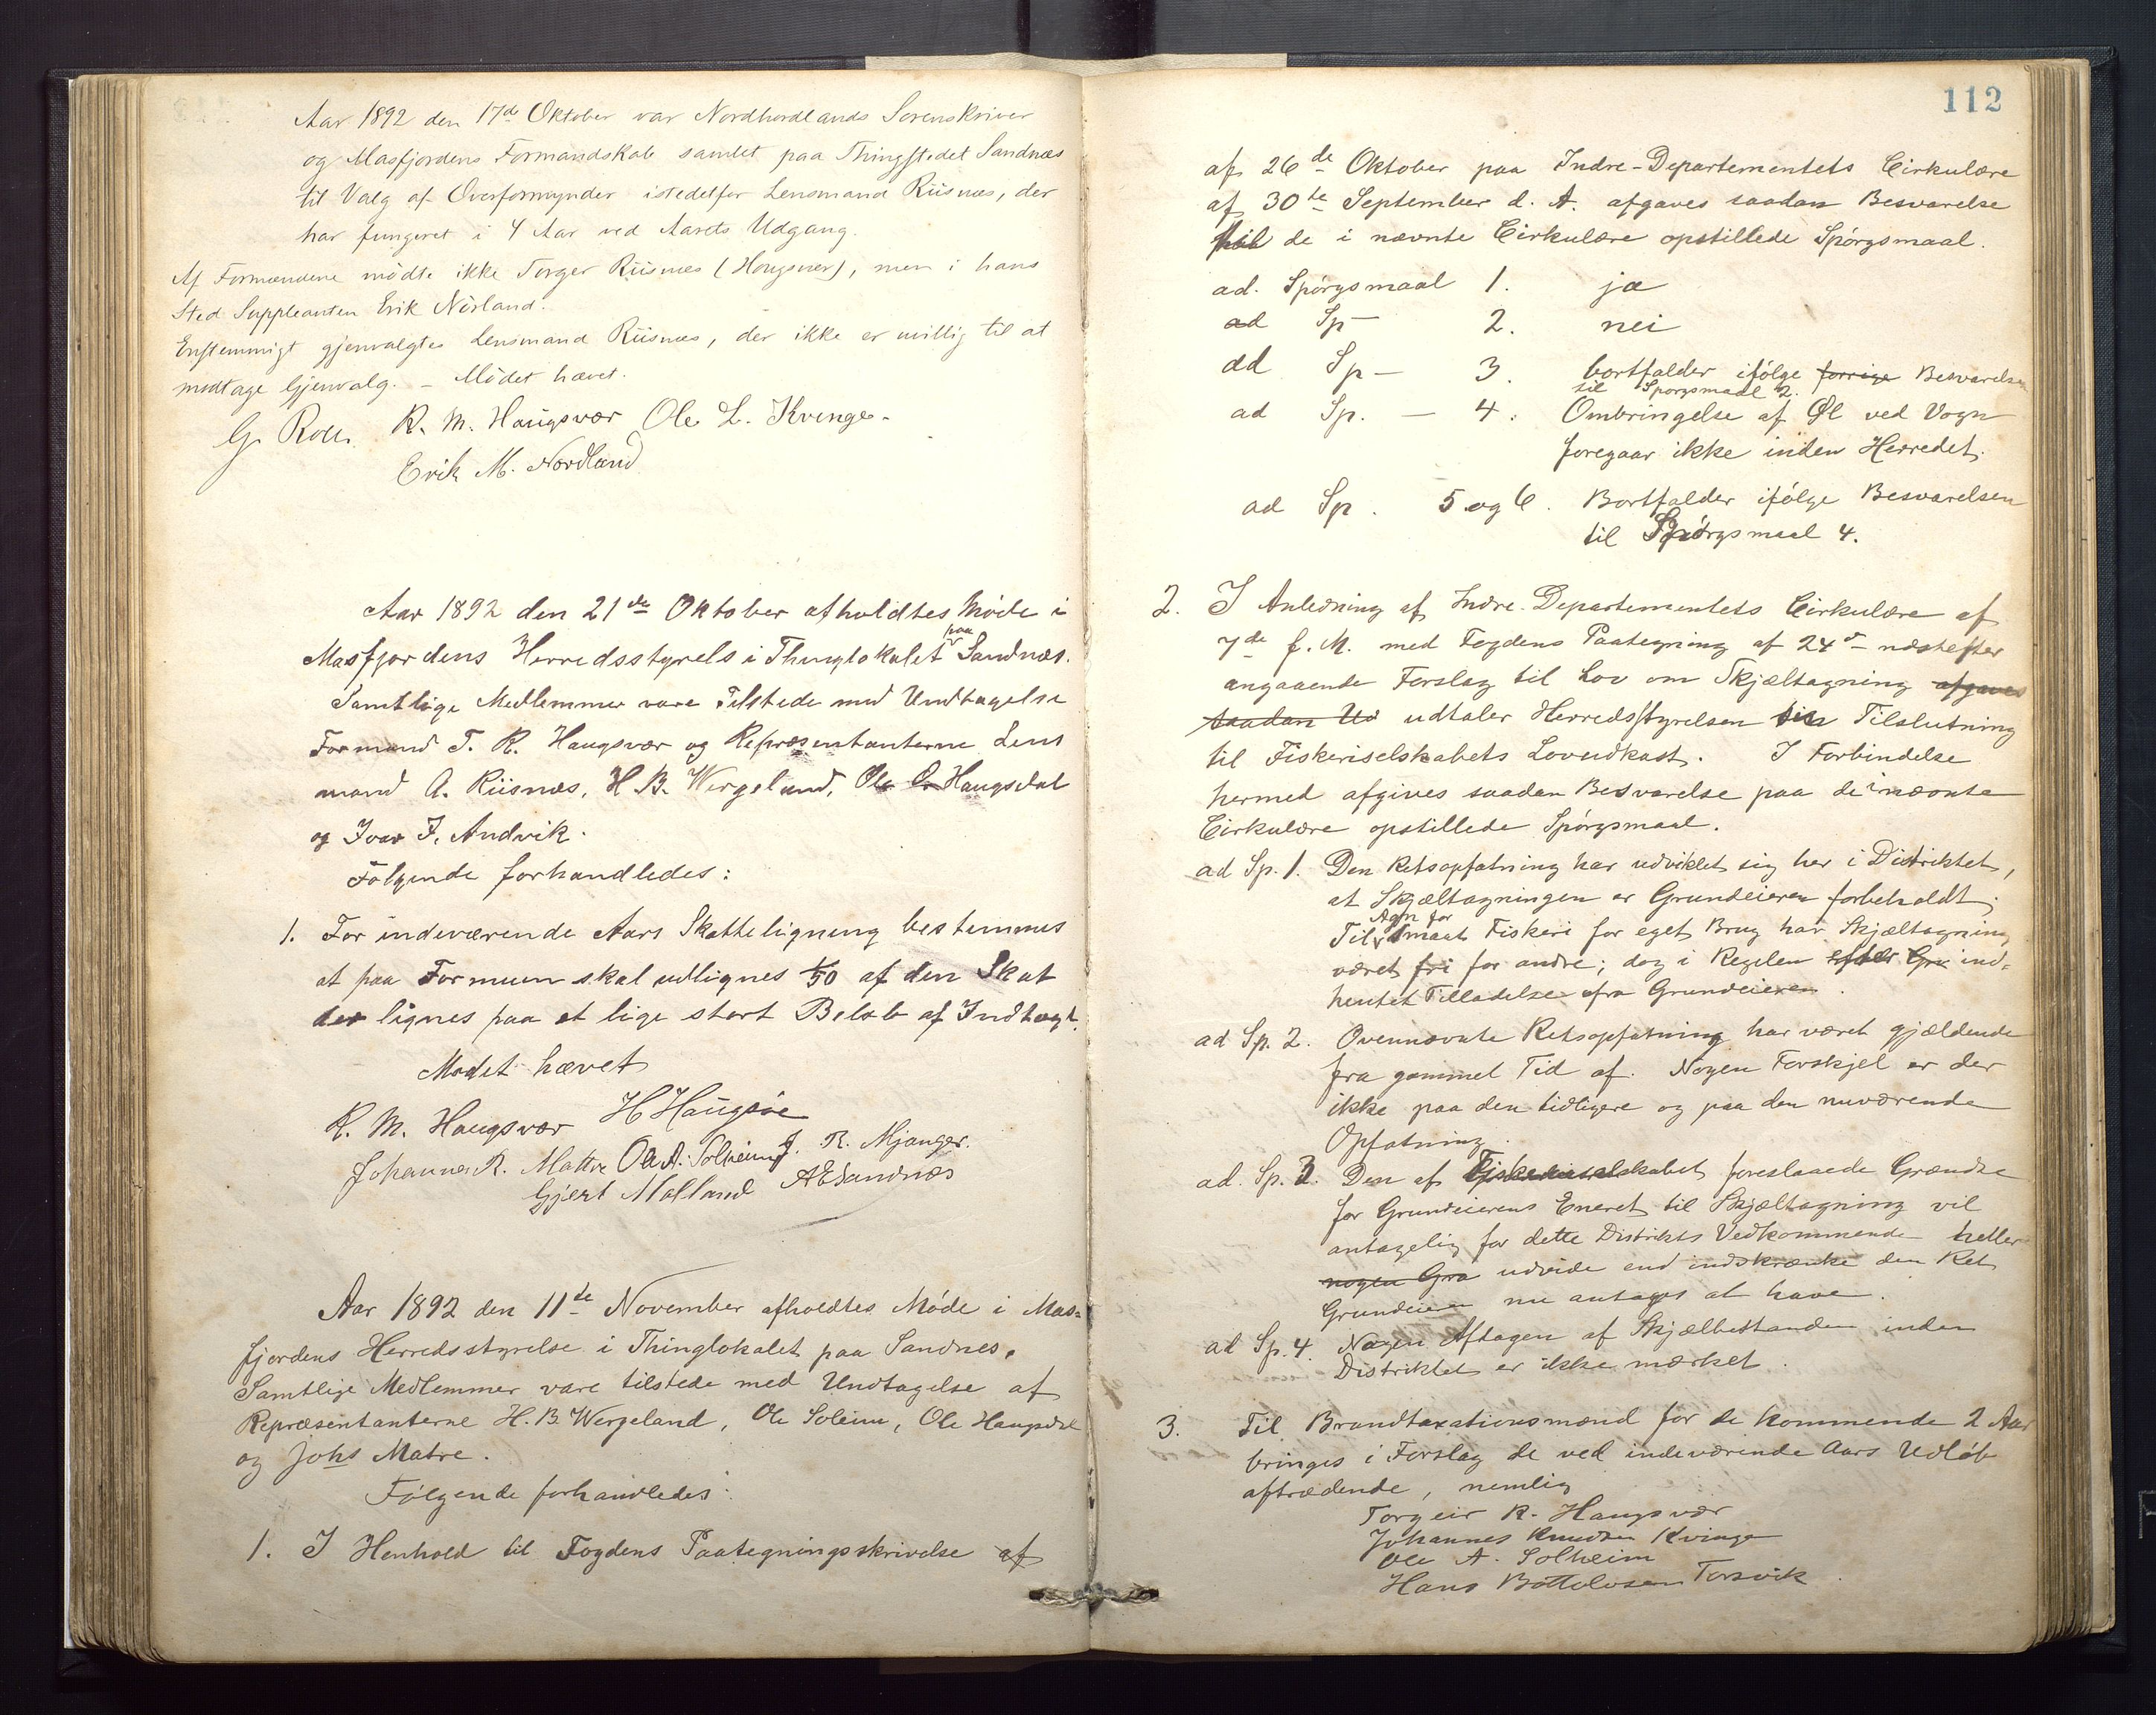 Aar 1892 den 17de Oktober var Nordhordlands Sorenskriver
og Masfjordens Formandskab samlet paa Thingstedet Sandnæs
til Valg af Overformynder istedetfor Lensmand Riisnæs, der
har fungeret i 4 Aar ved Aarets Udgang.
Af Formændene mödte ikke Torger Riisnes (Hougsvær), men i hans
Sted Suppleanten Erik Norland.
Enstemmigt gjenvalgtes Lensmand Riisnæs, der ikke er willig til at
modtage Gjenvalg. – Mödet hævet.
G. R. M. Haugsvær Ole L. Kvinge
Erik M. Nordland
Aar 1892 den 21de Oktober afholdtes Möde i
Masfjordens Herredsstyrels i Thinglokalet paa Sandnæs.
Samtlige Medlemmer vare Tilstede med Undtagelse
Formand T. R. Haugsvær og Repræsentanterne Lens
mand A. Riisnæs, H. B. Wergeland, Ole Haugsdal
og Ivar I. Andvik.
Følgende forhandledes:
1. For indeværende Aars Skatteligning bestemmes
at paa Formuen skal udlignes 1/50 af den Skat
der lignes paa et lige stort Beløb af Indtægt.
Mødet hævet
R. M. Haugsvær H Haugsöe
Johannes R. Matre Ole A. Solheim J. R. Mjanger.
Gjert Molland A E Sandnæs
Aar 1892 den 11te November afholdtes Möde i Mas=
fjordens Herredsstyrelse i Thinglokalet paa Sandnes.
Samtlige Medlemmer vare tilstede med Undtagelse af
Repræsentanterne H. B. Wergeland, Ole Soleim, Ole Haugsdal
og Johs Matre.
Fölgende forhandledes:
1. I Henhold til Fogdens Paategningsskrivelse af
112
af 26de Oktober paa Indre-Departementets Cirkulære
af 30te September d. A. afgaves saadan Besvarelse
til de i nævnte Cirkulære opstillede Spörgsmaal.
ad. Spörgsmaal 1. ja
ad Sp – 2. nei
ad Sp – 3. bortfalder ifölge forrige Besvarelse
til Spörgsmaal 2.
ad Sp. – 4. Ombringelse af Öl ved Vogn
foregaar ikke inden Herredet.
ad Sp. 5 og 6. Bortfalder ifölge Besvarelsen
til Spörgsmaal 4.
2. I Anledning af Indre-Departementets Cirkulære af
7de f. M. med Fogdens Paategning af 24de næstefter
angaaende Forslag til Lov om Skjæltagning afgaves
saadan Ud udtaler Herredsstyrelsen sin Tilslutning
til Fiskeriselskabets Lovudkast. I Forbindelse
hermed afgives saadan Besvarelse paa de i nævnte
Cirkulære opstillede Spörgsmaal.
ad Sp. 1. Den Retsopfatning har udviklet sig her i Distriktet,
at Skjæltagningen er Grundeieren forbeholdt.
Til Agn for smaat Fiskeri for eget Brug har Skjæltagning
været fri for andre; dog i Regelen efter Gru ind=
hentet Tilladelse fra Grundeieren.
ad Sp. 2. Ovennævnte Retsopfatning har været gjældende
fra gammel Tid af. Nogen Forskjel er der
ikke paa den tidligere og paa den nuværende
Opfatning.
ad. Sp. 3. Den af Fiskeriselskabet foreslaaede Grændse
for Grundeierens Eneret til Skjæltagning vil
antagelig for dette Distrikts Vedkommende heller
nogen Gra udvide end indskrænke den Ret
Grundeieren nu antages at have.
ad Sp. 4. Nogen Aftagen af Skjælbestanden inden
Distriktet er ikke mærket.
3. Til Brandtaxationsmænd for de kommende 2 Aar
bringes i Forslag de ved indeværende Aars Udlöb
aftrædende, nemlig
Torgeir R. Haugsvær
Johannes Knudsen Kvinge
Ole A. Solheim
Hans Bottolvsen Torsvik.